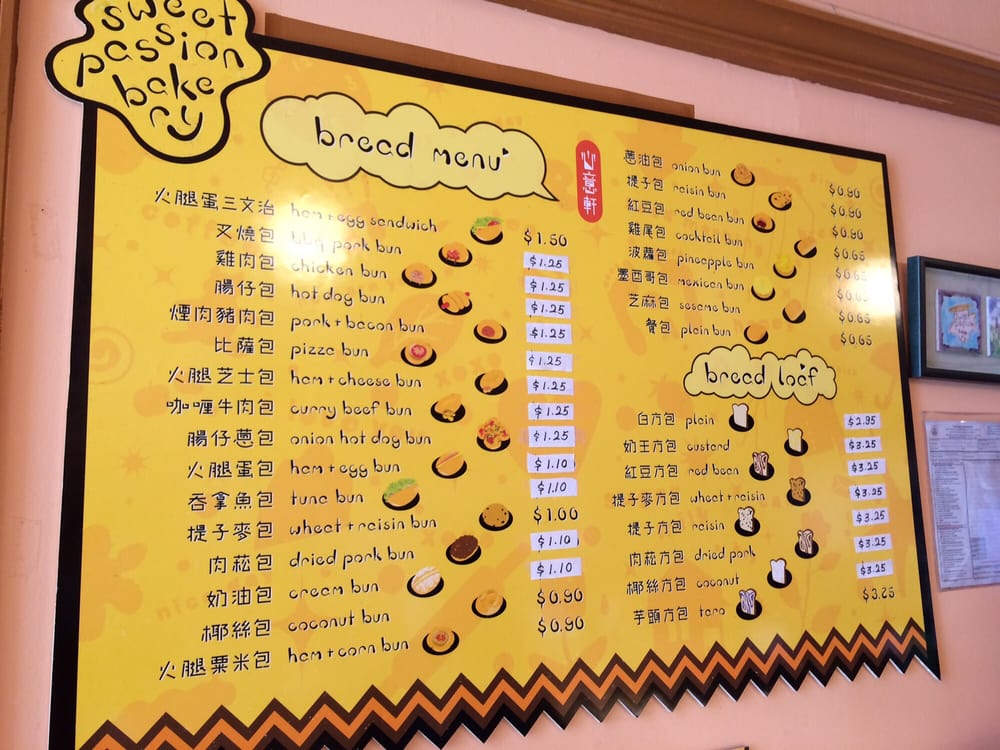 sweet
passion
bake
ry
bread menu
心意軒
火腿蛋三文治 ham+egg sandwich $1.50
叉燒包 bbq pork bun $1.25
雞肉包 chicken bun $1.25
腸仔包 hot dog bun $1.25
煙肉豬肉包 pork+bacon bun $1.25
比薩包 pizza bun $1.25
火腿芝士包 ham+cheese bun $1.25
咖喱牛肉包 curry beef bun $1.25
腸仔蔥包 onion hot dog bun $1.25
火腿蛋包 ham+egg bun $1.10
吞拿魚包 tuna bun $1.10
提子麥包 wheat+raisin bun $1.00
肉菘包 dried pork bun $1.10
奶油包 cream bun $1.10
椰絲包 coconut bun $0.90
火腿粟米包 ham+corn bun $0.90
蔥油包 onion bun $0.90
提子包 raisin bun $0.90
紅豆包 red bean bun $0.90
雞尾包 cocktail bun $0.65
波蘿包 pineapple bun $0.65
墨西哥包 mexican bun $0.65
芝麻包 sesame bun $0.65
餐包 plain bun $0.65
bread loaf
白方包 plain $2.95
奶王方包 custard $3.25
紅豆方包 red bean $3.25
提子麥方包 wheat+raisin $3.25
提子方包 raisin $3.25
肉菘方包 dried pork $3.25
椰絲方包 coconut $3.25
芋頭方包 taro $3.25